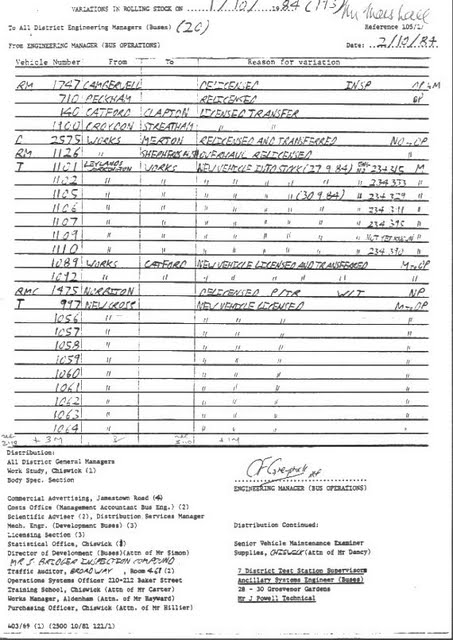 VARIATIONS IN ROLLING STOCK ON 1/10/1984 (193)
Mr Marshall
To All District Engineering Managers (Buses) (20) Reference 105/1
From ENGINEERING MANAGER (BUS OPERATIONS) Date: 2/10/84
Vehicle Number From To Reason for variation
RM 1747 CAMBERWELL DELICENSED INSP OP-M
710 PECKHAM RELICENSED OP
140 CATFORD CLAPTON LICENSED TRANSFER
1900 CROYDON STREATHAM " "
C 2575 WORKS MERTON RELICENSED AND TRANSFERRED NO-OP
RM 1126 " SHEPHERDS B OVERHAUL RELICENSED
T 1101 LEYLANDS WORKINGTON WORKS NEW VEHICLE INTO STOCK (27.9.84) ENG No 234315 M
1102 " " " " " " " 234333 "
1105 " " " " " " (30.9.84) " 234329 "
1106 " " " " " " " 234311 "
1107 " " " " " " " 234395 "
1109 " " " " " " " NOT YET KNOWN "
1110 " " " " " " " 234390 "
1089 WORKS CATFORD NEW VEHICLE LICENSED AND TRANSFERRED M-OP
1092 " " " " " " "
BMC 1475 NORBITON DELICENSED P/TR WIT NP
T 997 NEW CROSS NEW VEHICLE LICENSED M-OP
1056 " " " " "
1057 " " " " "
1058 " " " " "
1059 " " " " "
1060 " " " " "
1061 " " " " "
1062 " " " " "
1063 " " " " "
1064 " " " " "
+ 3M + 1M
Distribution:
All District General Managers
Work Study, Chiswick (1)
Body Spec. Section
ENGINEERING MANAGER (BUS OPERATIONS)
Commercial Advertising, Jamestown Road (4)
Costs Office (Management Accountant Bus Eng.) (2)
Scientific Adviser (2), Distribution Services Manager
Mech. Engr. (Development Buses) (3)
Licensing Section (3)
Statistical Office, Chiswick
Director of Development (Buses)(Attn of Mr Simon)
MR S BRIDGER INSPECTION COMPOUND
Traffic Auditor, BROADWAY, Room 4.69 (1)
Operations Systems Officer 210-212 Baker Street
Training School, Chiswick (Attn of Mr Carter)
Works Manager, Aldenham (Attn of Mr Hayward)
Purchasing Officer, Chiswick (Attn. of Mr Hillier)
Distribution Continued:
Senior Vehicle Maintenance Examiner
Supplies, CHISWICK (Attn of Mr Dancy)
7 District Test Station Supervisors
Ancillary Systems Engineer (Buses)
28 - 30 Grosvenor Gardens
Mr J Powell Technical
403/69 (1) (2500 10/81 121/1)